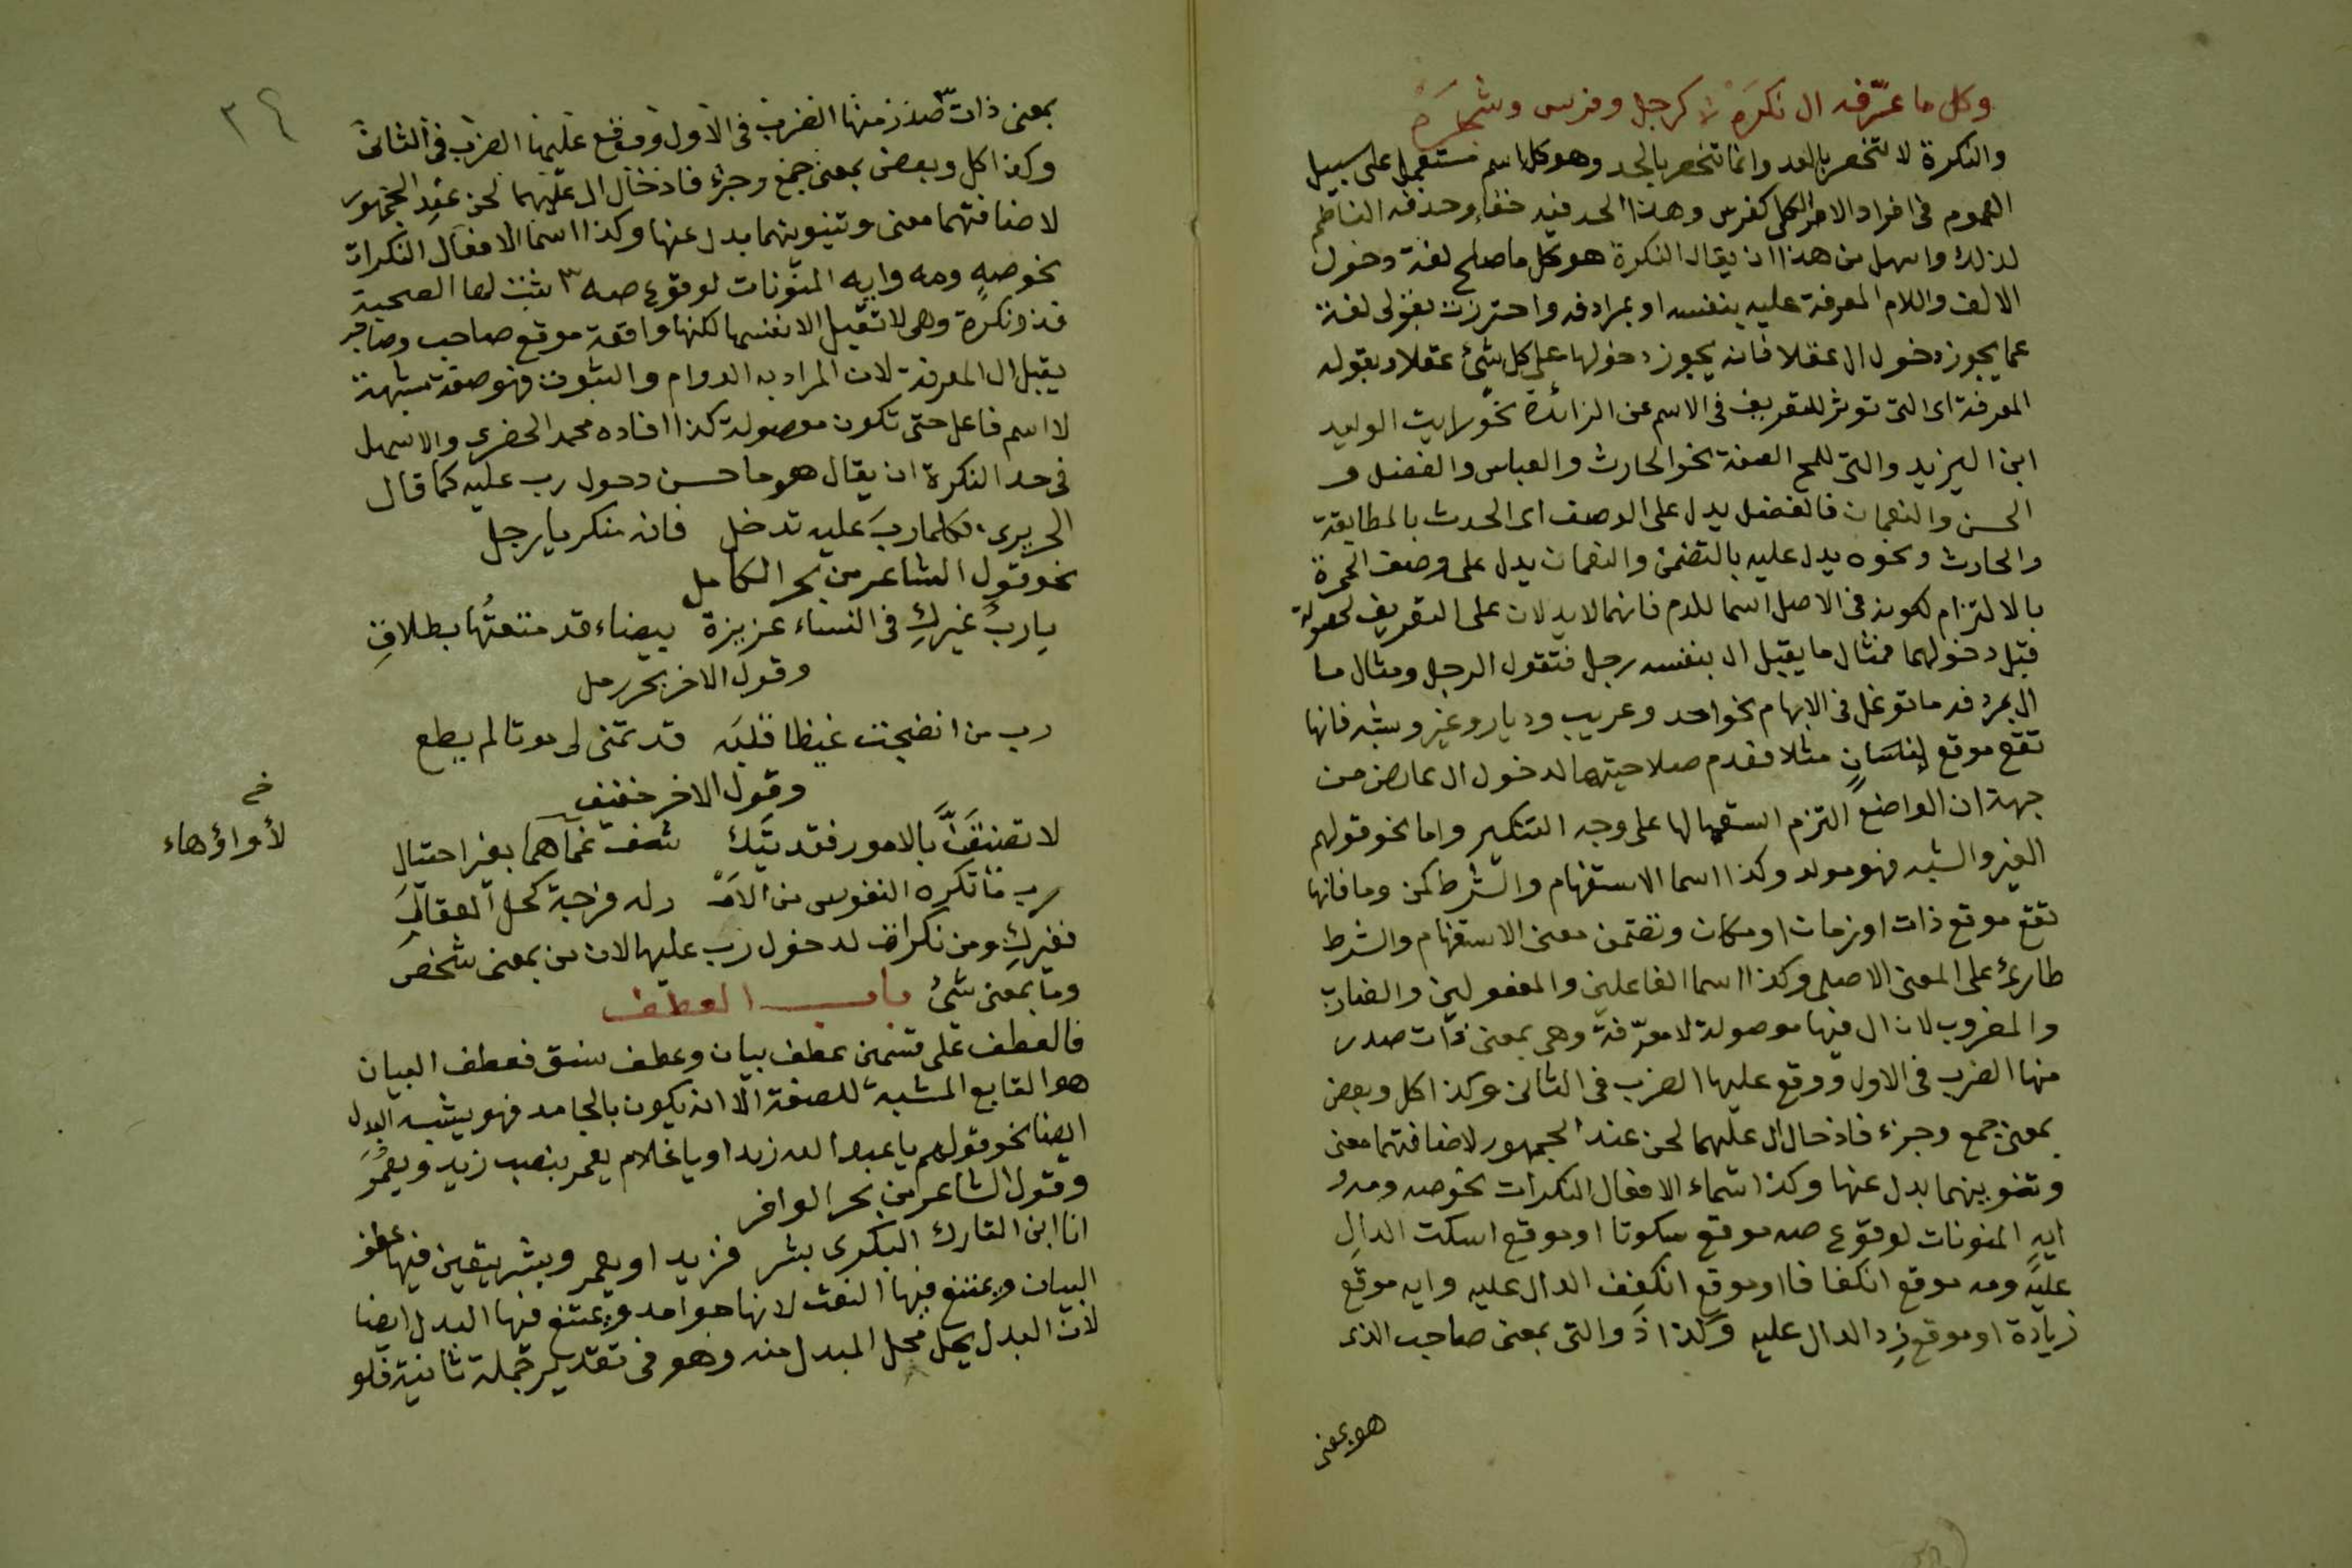 وكل ما عرّفه ال نكره لا كرجل وفرس وشجره
والنكرة لا تنحصر بالعد وانما تنحصر بالحد وهو كل اسم مستعمل على سبيل
العموم فى افراد الامر الكلى كفرس وهذا الحد فيه خفاء وحذفه الناظم
لذلك واسهل من هذا ان يقال النكرة هو كل ما صلح لغة دخول
الالف واللام المعرفة عليه بنفسه او بمرادفه واحترزت بقولى لغة
عما يجوز دخول ال عقلا فانه يجوز دخولها على كل شئ عقلا وبقوله
المعرفة اى التى توثر للتعريف فى الاسم عن الزائدة نحو رايت الوليد
ابن اليزيد والتى للمح الصفة نحو الحارث والعباس والفضل و
الحسن والنعمان فالفضل يدل على الوصف اى الحدث بالمطابقة
والحارث ونحوه يدل عليه بالتضمن والنعمان يدل على وصف الحمرة
بالالتزام لكونه فى الاصل اسما للدم فانهما لا يدلان على التعريف لحصوله
قبل دخولهما فمثال ما يقبل ال بنفسه رجل فتقول الرجل ومثال ما
ال بمردفه ما توغل فى الابهام نحو احد وعريب وديار وغير وشبه فانها
تقع موقع إنسانٍ مثلا فعدم صلاحيتها لدخول ال عارض من
جهة ان الواضع التزم استعمالها على وجه التنكير واما نحو قولهم
الغير والشبه فهو مولد وكذا اسما الاستفهام والشرط كمن وما فانها
تقع موقع ذات او زمان او مكان وتضمن معنى الاستفهام والشرط
طارئ على المعنى الاصلى وكذا اسما الفاعلين والمفعولين والضارب
والمضروب لان ال فيها موصولة لا معرّفة وهى بمعنى ذات صدر
منها الضرب فى الاول ووقع عليها الضرب فى الثانى وكذا كل وبعض
بمعنى جمع وجزء فادخال ال عليهما لحن عند الجمهور لاضافتهما معنى
وتنوينهما بدل عنها وكذا اسماء الافعال النكرات نحو صه ومه و
ايهٍ المنونات لوقوع صه موقع سكوتا او موقع اسكت الدالِ
عليه ومه موقع انكفافا او موقع انكفف الدال عليه وايه موقع
زيادة او موقع زِد الدال عليه وكذا ذو التى بمعنى صاحب الذى
هو بمعنى
٣٤
بمعنى ذات صدر منها الضرب فى الاول ووقع عليها الضرب فى الثانى
وكذا كل وبعض بمعنى جمع وجزء فادخال ال عليهما لحن عند الجمهور
لاضافتهما معنى وتنوينهما بدل عنها وكذا اسما الافعال النكرات
نحو صهٍ ومه وايه المنونات لوقوع صه ٣ ثبت لها الصحبة
فذو نكرة وهى لا تقبل ال نفسها لكنها واقعة موقع صاحب وصاحب
يقبل ال المعرفة لان المراد به الدوام والثبوت فهو صفة مشبهة
لا اسم فاعل حتى تكون موصولة كذا افاده محمد الخضرى والاسهل
فى حد النكرة ان يقال هو ما حسن دخول رب عليه كما قال
الحريرى فكلما ربَ عليه تدخل فانه منكر يا رجل
نحو قول الشاعر من بحر الكامل
يا ربَّ غيركِ فى النساء عزيزة بيضاء قد متعتُها بطلاقِ
وقول الاخر بحر رمل
رب من انضجت غيظا قلبَه قد تمنى لى موتا لم يطع
وقول الاخر خفيف
لا تضيقَنَّ بالامور فقد تك شف غماهما بغير احتيال
رب ما تكره النفوس من الامْ ر له فرجة كحل العقالِ
فغيركِ ومن نكرات لدخول رب عليها لان من بمعنى شخص
وما بمعنى شئ باب العطف
فالعطف على قسمين عطف بيان وعطف نسق فعطف البيان
هو التابع المشبه للصفة الا انه يكون بالجامد فهو يشبه البدل
ايضا نحو قولهم يا عبد الله زيدا ويا غلام يعمر بنصب زيد ويعمُرَ
وقول الشاعر من بحر الوافر
انا ابن التارك البكرى بشر فزيد او يعمر وبشر يتعين فيها عطف
البيان ويمتنع فيها النعت لانها جوامد ويمتنع فيها البدل ايضا
لان البدل يحل محل المبدل منه وهو فى تقدير جملة ثانية فلو
خ
لأواؤهاء